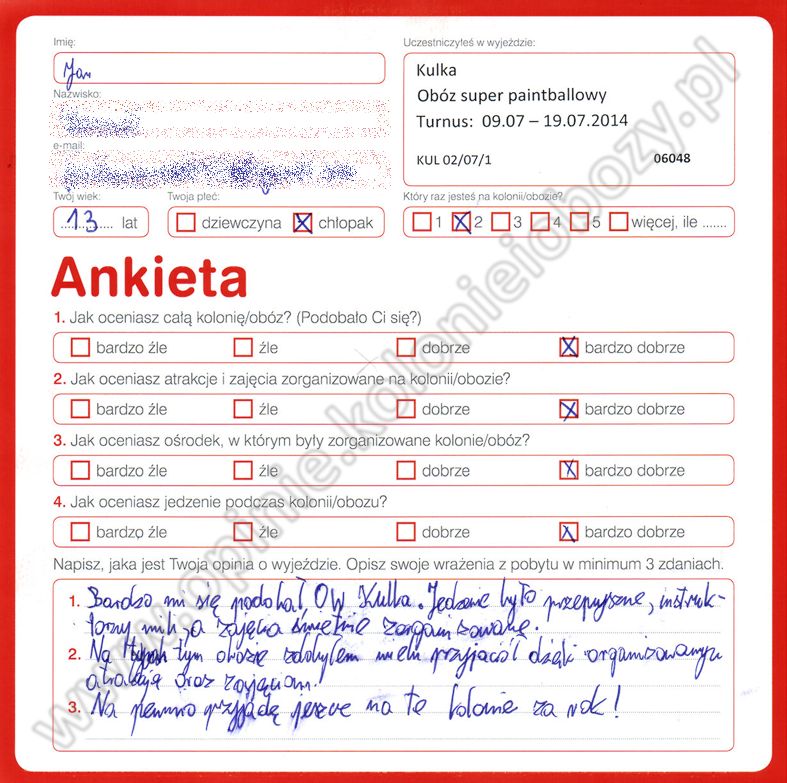 Imię:
Jan
Uczestniczyłeś w wyjeździe:
Kulka
Obóz super paintballowy
Turnus: 09.07 – 19.07.2014
KUL 02/07/1 06048
Nazwisko:
e-mail:
Twój wiek:
13 lat
Twoja płeć:
dziewczyna chłopak
Który raz jesteś na kolonii/obozie?
1 2 3 4 5 więcej, ile .......
Ankieta
1. Jak oceniasz całą kolonię/obóz? (Podobało Ci się?)
bardzo źle źle dobrze bardzo dobrze
2. Jak oceniasz atrakcje i zajęcia zorganizowane na kolonii/obozie?
bardzo źle źle dobrze bardzo dobrze
3. Jak oceniasz ośrodek, w którym były zorganizowane kolonie/obóz?
bardzo źle źle dobrze bardzo dobrze
4. Jak oceniasz jedzenie podczas kolonii/obozu?
bardzo źle źle dobrze bardzo dobrze
Napisz, jaka jest Twoja opinia o wyjeździe. Opisz swoje wrażenia z pobytu w minimum 3 zdaniach.
1. Bardzo mi się podobał OW Kulka. Jedzenie było przepyszne, instruk-
torzy mili, a zajęcia świetnie zorganizowane.
2. Na tym obozie zdobyłem wielu przyjaciół dzięki organizowanym
atrakcją oraz zajęciom!
3. Na pewno przyjadę jeszcze na te kolonie za rok!
www.opinie.kolonieiobozy.pl